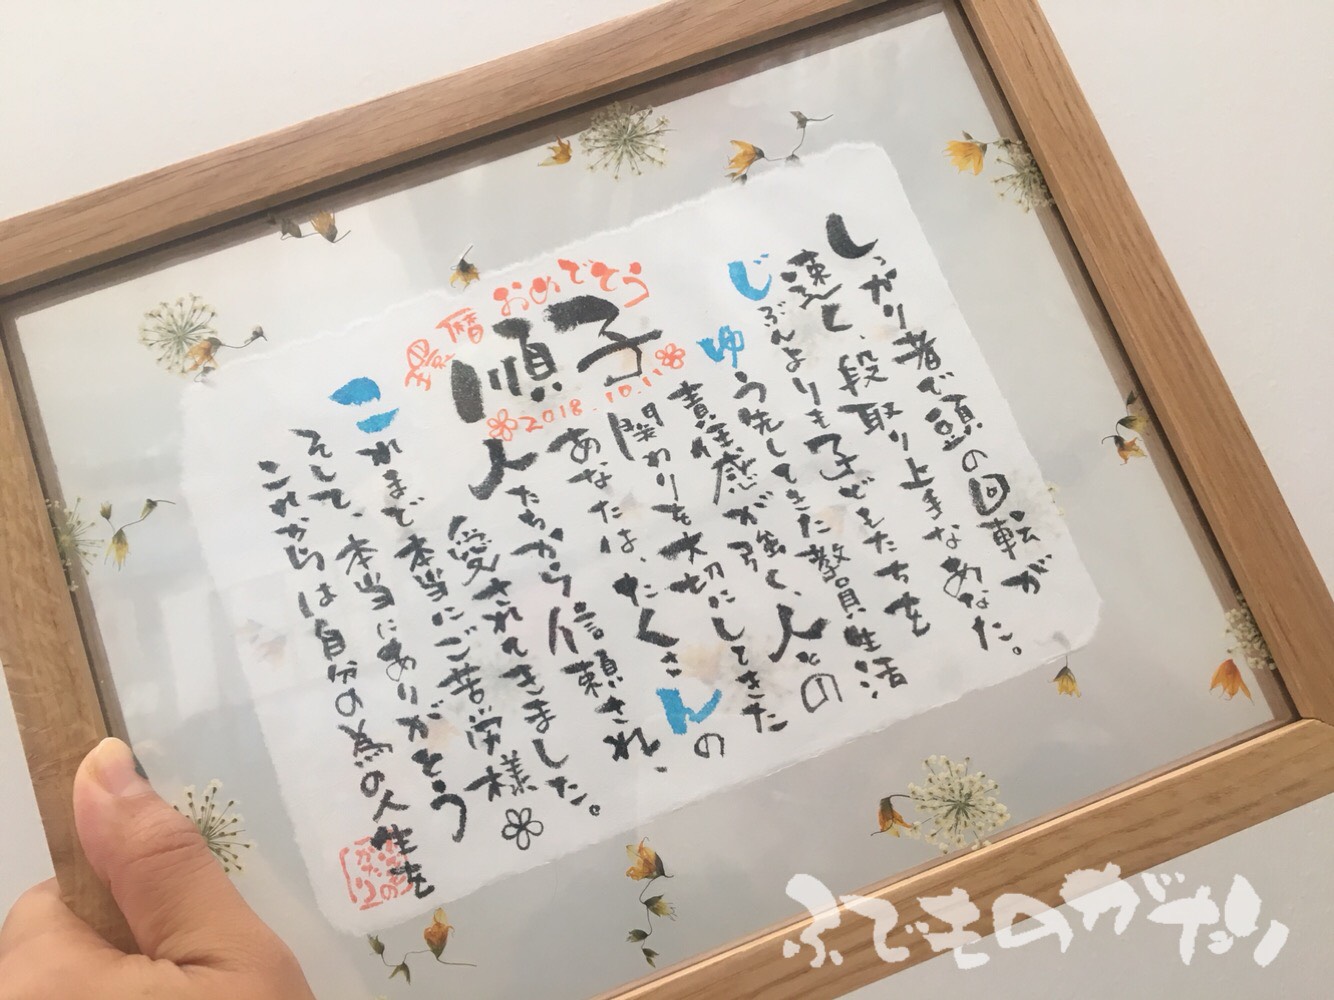 還暦おめでとう
順子
2018.10.11
しっかり者で頭の回転が
速く、段取り上手なあなた。
じぶんよりも子どもたちを
ゆう先してきた教員生活
責任感が強く、人との
関わりを大切にしてきた
あなたは、たくさんの
人たちから信頼され、
愛されてきました。
これまで本当にご苦労様
そして、本当にありがとう
これからは自分の為の人生を
ふでものがたり